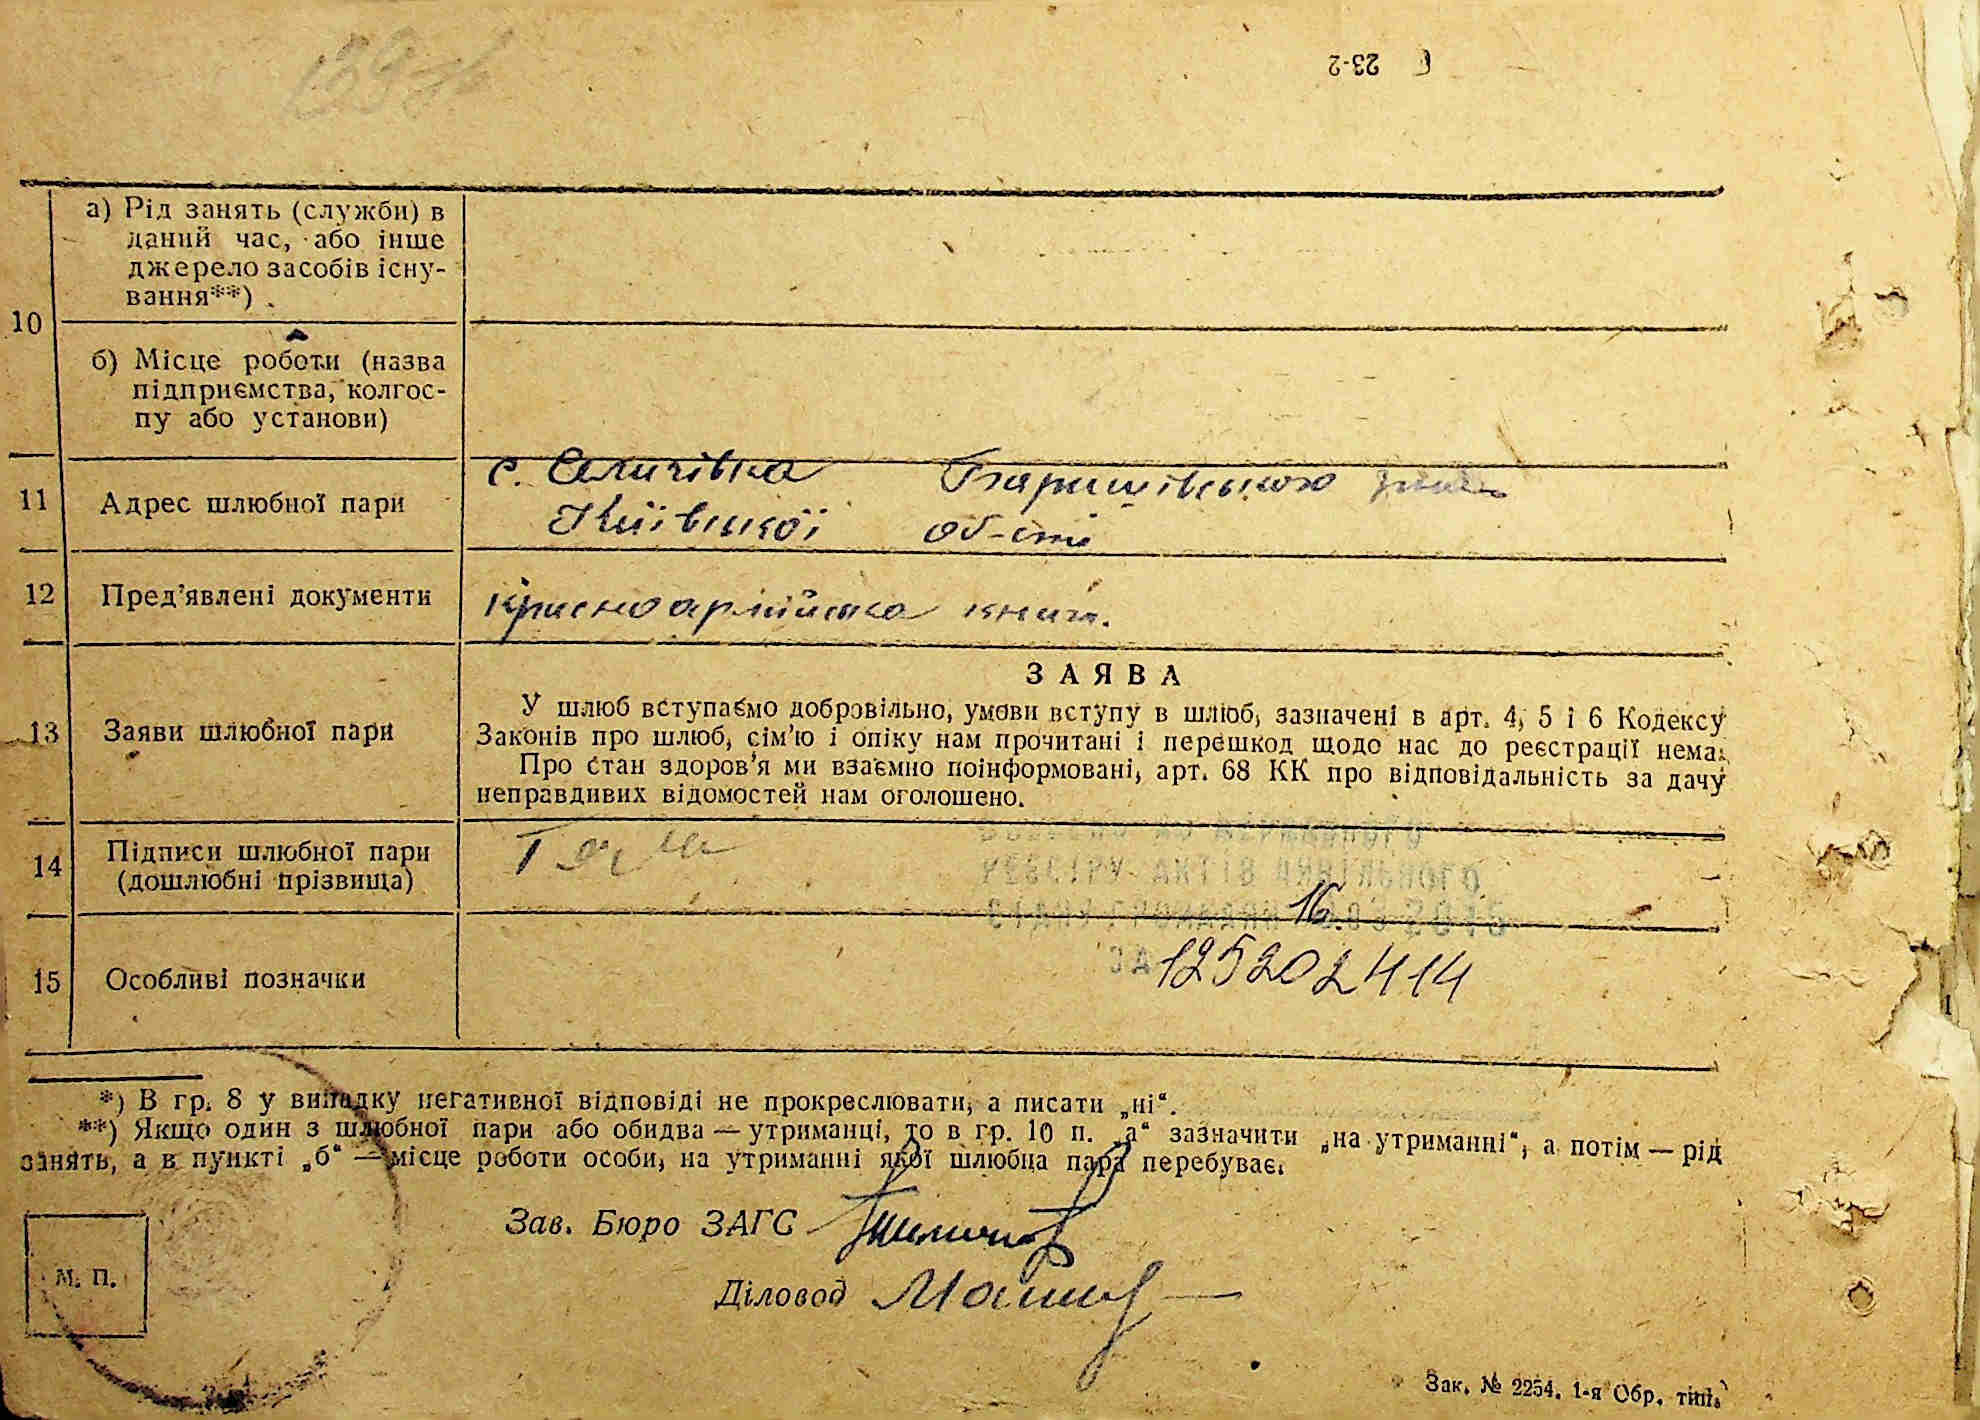 23-2
10
а) Рід занять (служби) в
даний час, або інше
джерело засобів існу-
вання**) .
б) Місце роботи (назва
підприємства, колгос-
пу або установи)
11
Адрес шлюбної пари
с. Селичівка Баришівського
Київської об-сті
12
Пред’явлені документи
Красноармійська книга.
13
Заяви шлюбної пари
ЗАЯВА
У шлюб вступаємо добровільно, умови вступу в шлюб, зазначені в арт. 4, 5 і 6 Кодексу
Законів про шлюб, сім’ю і опіку нам прочитані і перешкод щодо нас до реєстрації нема.
Про стан здоров’я ми взаємно поінформовані, арт. 68 КК про відповідальність за дачу
неправдивих відомостей нам оголошено.
14
Підписи шлюбної пари
(дошлюбні прізвища)
РЕЄСТРУ АКТІВ ЦИВІЛЬНОГО
16.
15
Особливі позначки
125202414
*) В гр. 8 у випадку негативної відповіді не прокреслювати, а писати „ні“.
**) Якщо один з шлюбної пари або обидва — утриманці, то в гр. 10 п. „а“ зазначити „на утриманні“, а потім — рід
занять, а в пункті „б“ — місце роботи особи, на утриманні якої шлюбна пара перебуває.
Зав. Бюро ЗАГС
М. П.
Діловод
Зак. № 2254. 1-я Обр. тип.